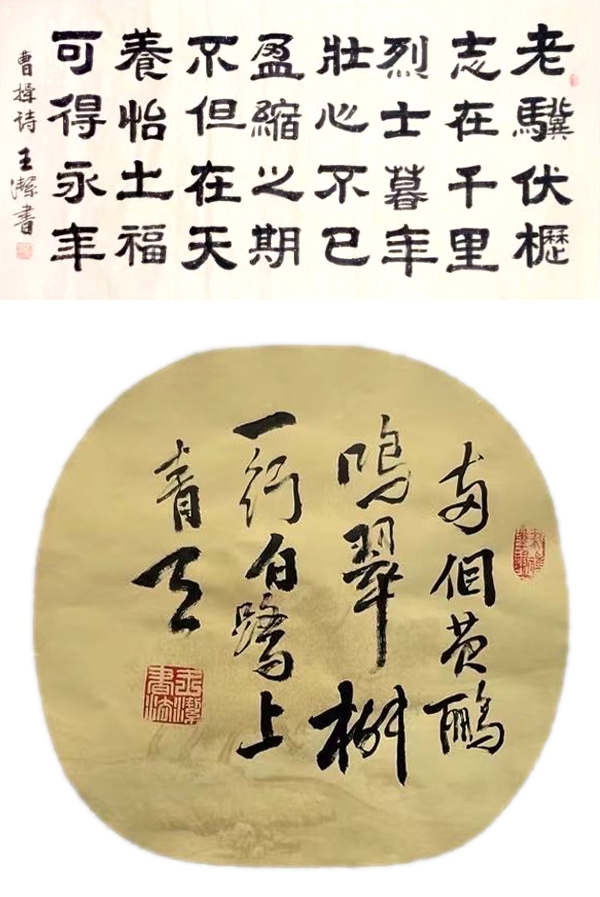 老驥伏櫪
志在千里
烈士暮年
壯心不已
盈縮之期
不但在天
養怡土福
可得永年
曹操詩 王潔書
両個黃鸝
鳴翠柳
一行白鷺上
青天
王潔書法